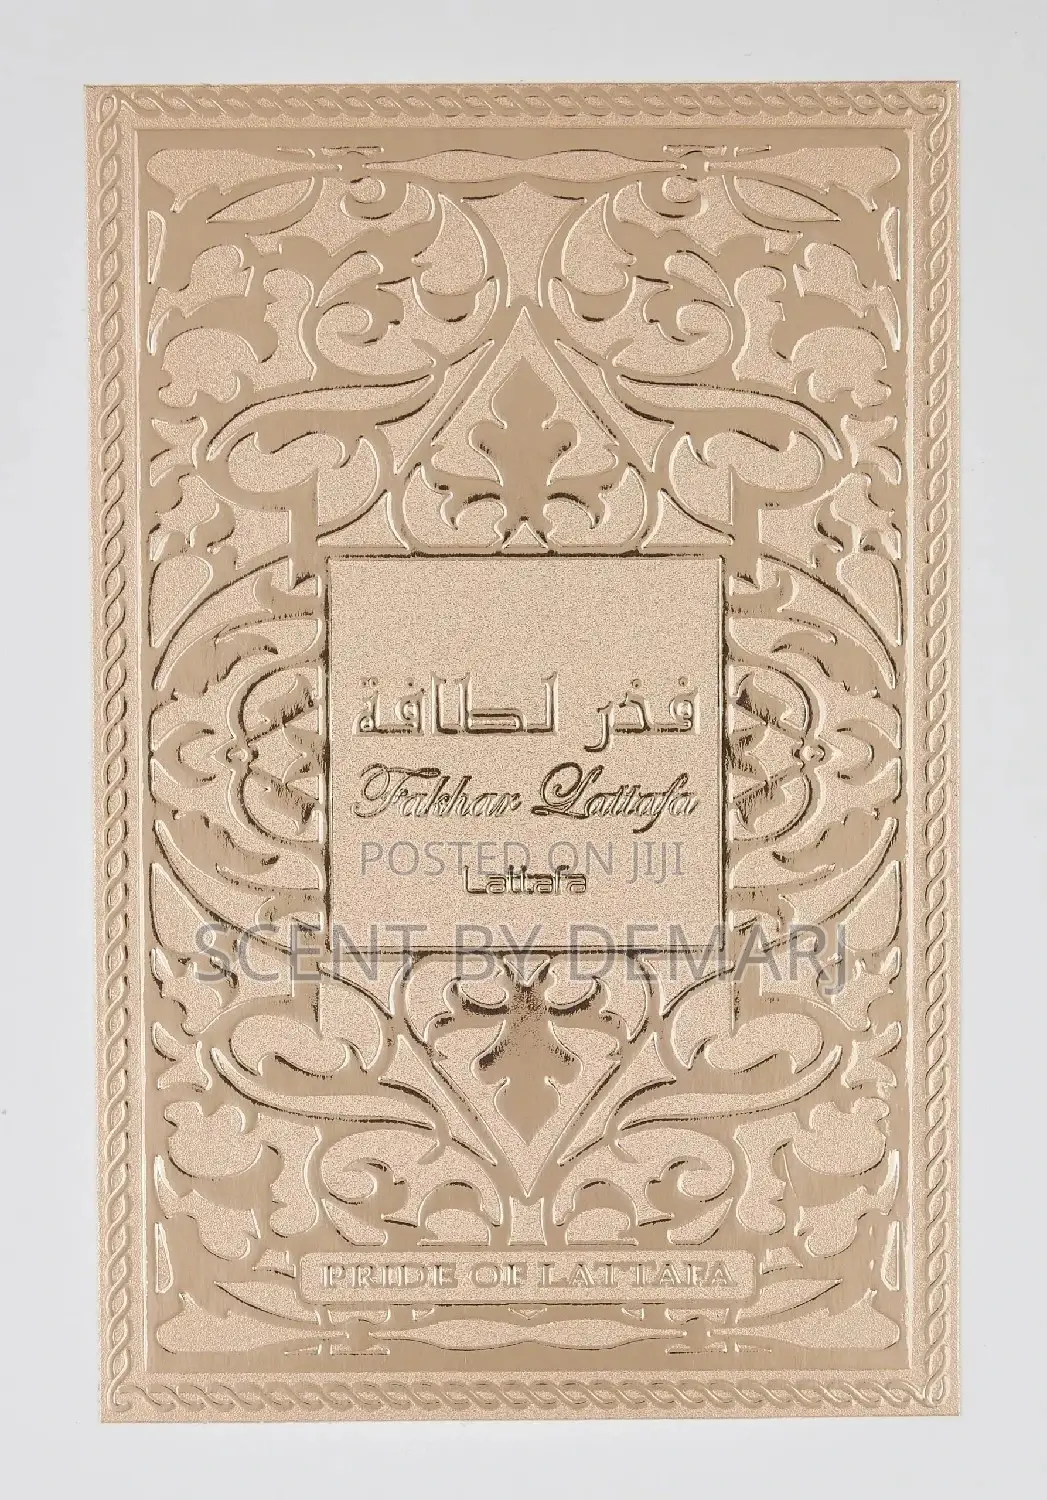 فخر لطافة
Fakhar Lattafa
POSTED ON JIJI
Lattafa
SCENT BY DEMARJ
PRIDE OF LATTAFA